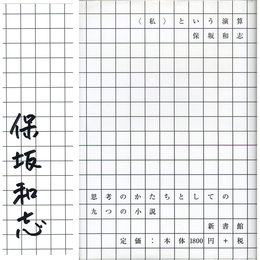 保坂和志
〈私〉という演算
保坂和志
思考のかたちとしての
九つの小説
新書館
定価：本体1800円+税